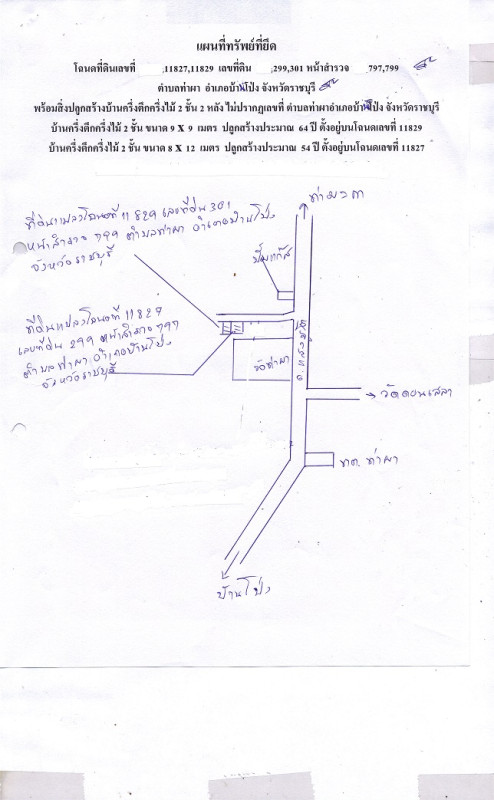 แผนที่ทรัพย์ที่ยึด
โฉนดที่ดินเลขที่ .11827,11829 เลขที่ดิน .299,301 หน้าสำรวจ 797,799
ตำบลท่าผา อำเภอบ้านโป่ง จังหวัดราชบุรี
พร้อมสิ่งปลูกสร้างบ้านครึ่งตึกครึ่งไม้ 2 ชั้น 2 หลัง ไม่ปรากฏเลขที่ ตำบลท่าผาอำเภอบ้านโป่ง จังหวัดราชบุรี
บ้านครึ่งตึกครึ่งไม้ 2 ชั้น ขนาด 9 X 9 เมตร ปลูกสร้างประมาณ 64 ปี ตั้งอยู่บนโฉนดเลขที่ 11829
บ้านครึ่งตึกครึ่งไม้ 2 ชั้น ขนาด 8 X 12 เมตร ปลูกสร้างประมาณ 54 ปี ตั้งอยู่บนโฉนดเลขที่ 11827
ท่ามะกา
ที่ดินแปลงโฉนดที่ 11829 เลขที่ดิน 301
หน้าสำรวจ 799 ตำบลท่าผา อำเภอบ้านโป่ง
จังหวัดราชบุรี
ปั๊มแก๊ส
ที่ดินแปลงโฉนดที่ 11827
เลขที่ดิน 299 หน้าสำรวจ 797
ตำบลท่าผา อำเภอบ้านโป่ง
จังหวัดราชบุรี
วัดท่าผา
ถ.แสงชูโต
วัดดอนเสลา
ทต.ท่าผา
บ้านโป่ง